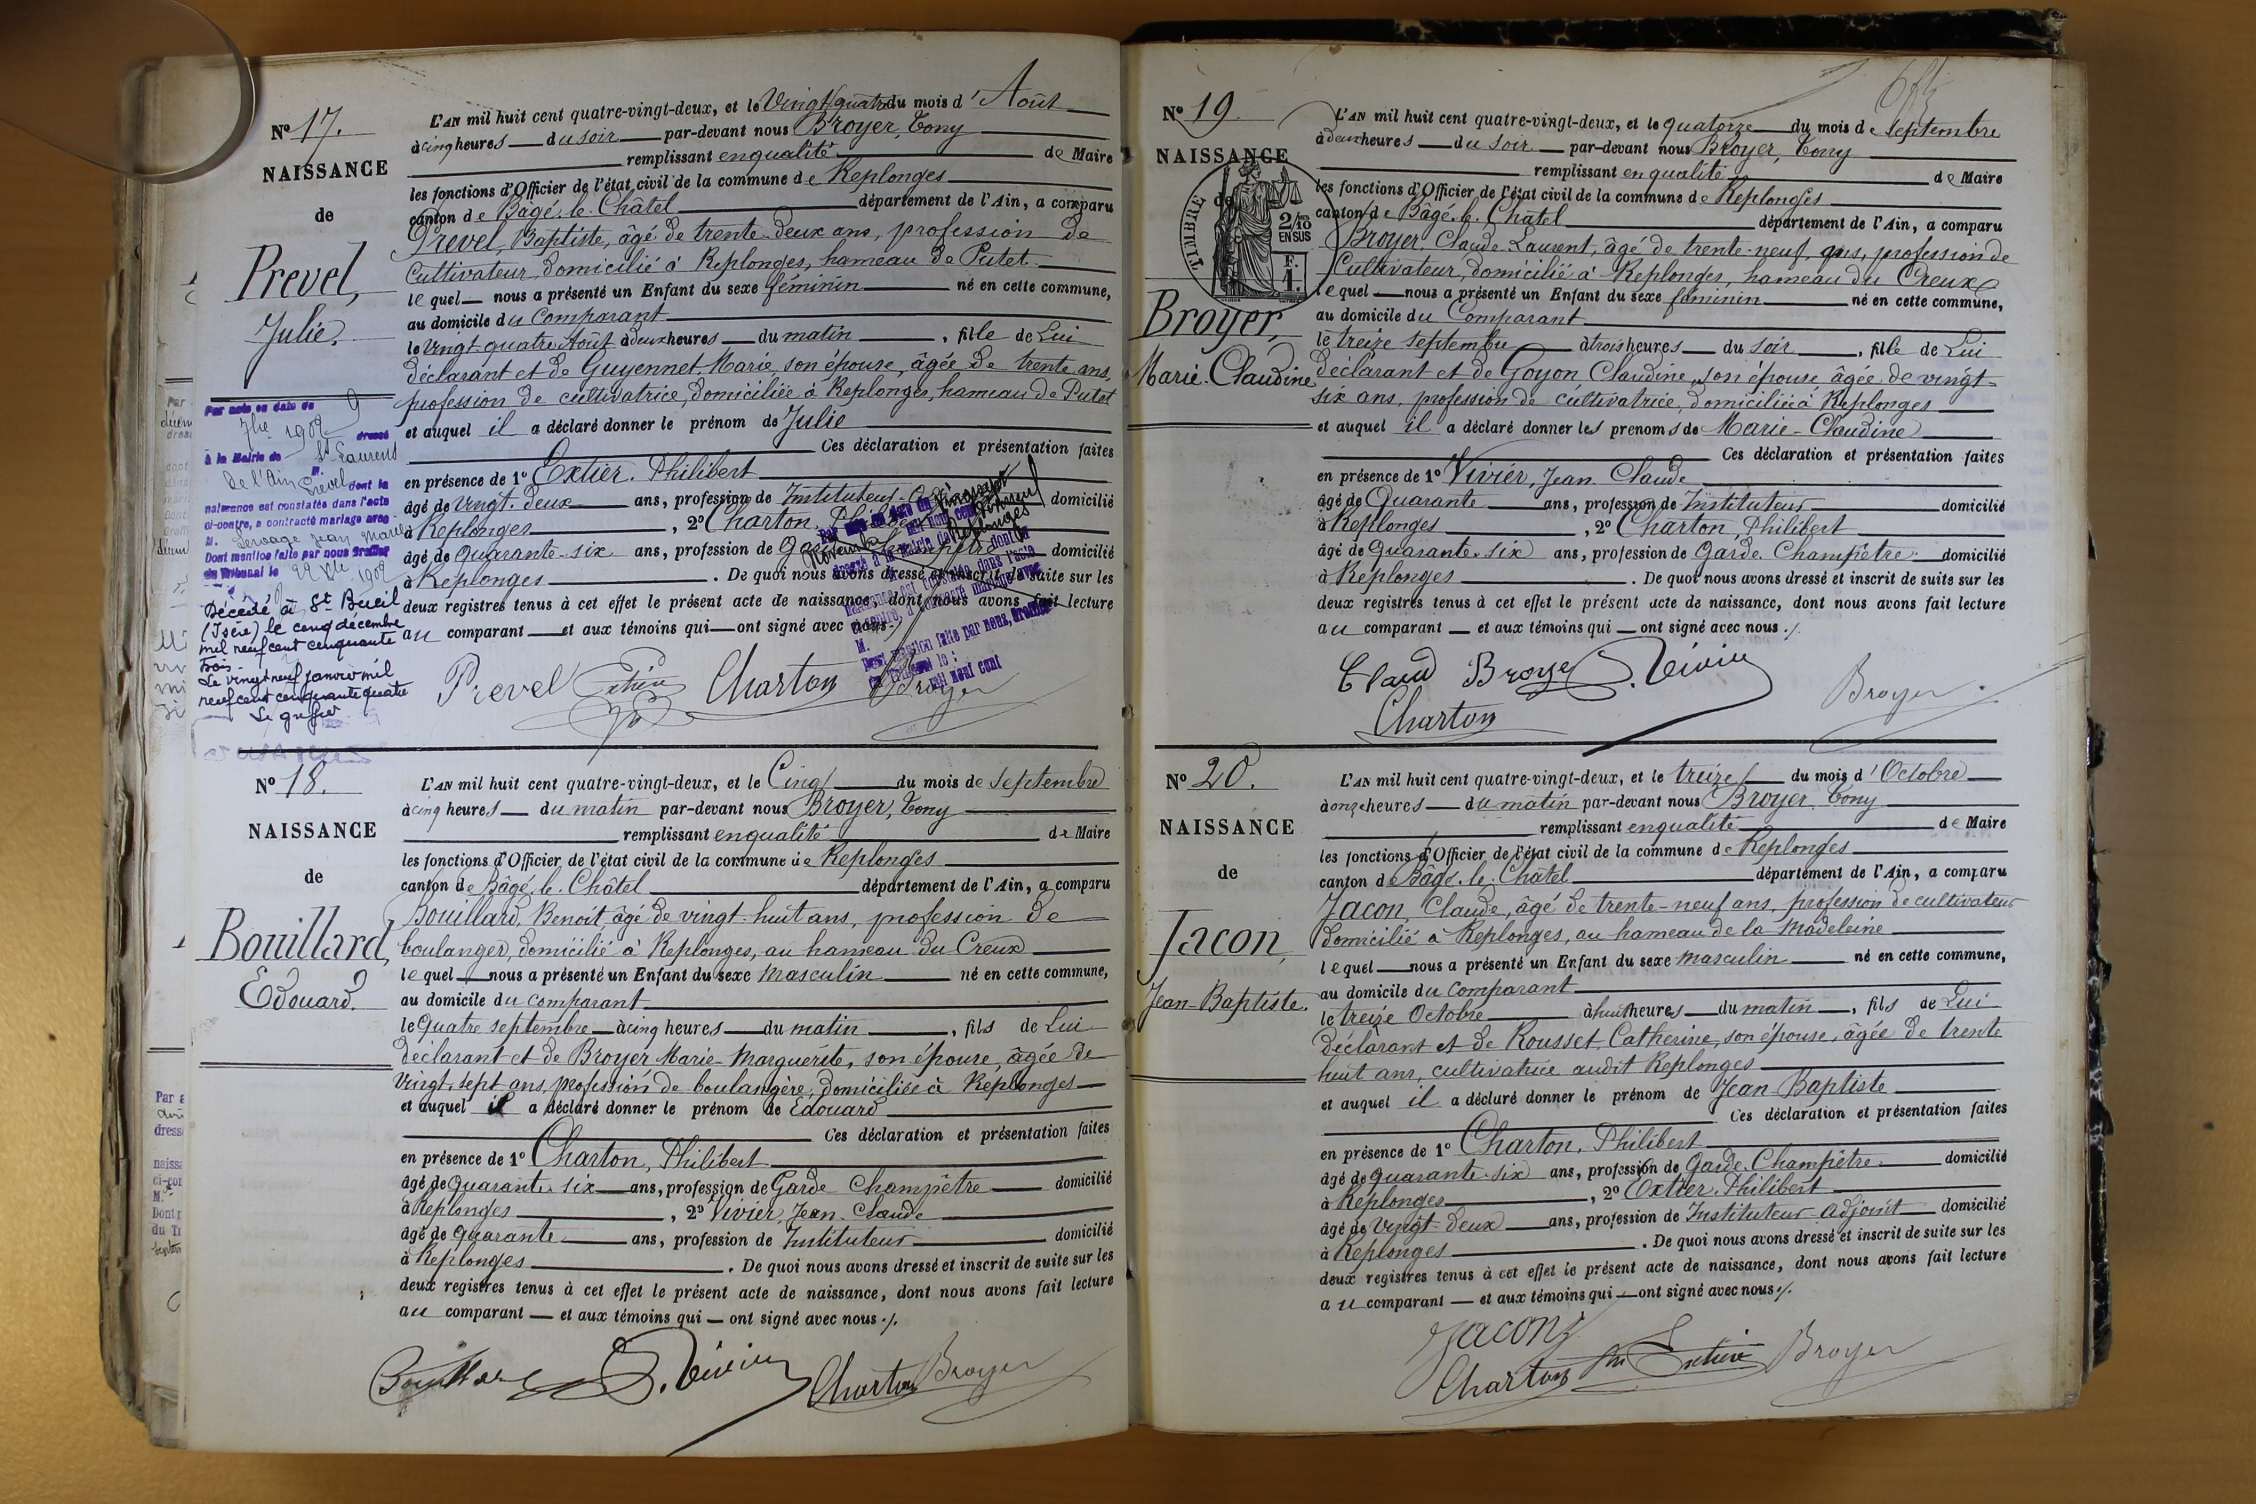 Nº 17.
NAISSANCE
de
Prevel,
Julie.
L'AN mil huit cent quatre-vingt-deux, et le Vingt quatre du mois d'Août
à cinq heures du soir par-devant nous Broyer, Tony
remplissant en qualité de Maire
les fonctions d'Officier de l'état civil de la commune de Replonges
canton de Bâgé-le-Châtel département de l'Ain, a comparu
Prevel, Baptiste, âgé de trente-deux ans, profession de
Cultivateur, domicilié à Replonges, hameau de Putet
lequel nous a présenté un Enfant du sexe féminin né en cette commune,
au domicile du Comparant
le Vingt quatre Août à deux heures du matin, fille de Lui
déclarant et de Guyennet, Marie, son épouse, âgée de trente ans,
profession de cultivatrice, domiciliée à Replonges, hameau de Putet
et auquel il a déclaré donner le prénom de Julie
Ces déclaration et présentation faites
en présence de 1º Extier, Philibert
âgé de Vingt-deux ans, profession de Instituteur domicilié
à Replonges, 2º Charton, Philibert
âgé de quarante-six ans, profession de Garde Champêtre domicilié
à Replonges. De quoi nous avons dressé et inscrit de suite sur les
deux registres tenus à cet effet le présent acte de naissance, dont nous avons fait lecture
au comparant et aux témoins qui ont signé avec nous ./.
Prevel Extier Charton Broyer
Par acte en date du 9
7bre 1902 dressé
à la Mairie de St Laurent
de l'Ain
M. Prevel dont la
naissance est constatée dans l'acte
ci-contre, a contracté mariage avec
M. Lesage Jean Marie
Dont mention faite par nous Greffier
du Tribunal le 22 Xbre 1902
Décédé à St Bueil
(Isère) le cinq décembre
mil neuf cent cinquante
trois.
Le vingt neuf janvier mil
neuf cent cinquante quatre
Le greffier
Par acte en date du vingt sept
Novembre mil neuf cent
dressé à la Mairie de Replonges
dont la
naissance est constatée dans l'acte
ci-contre, a contracté mariage avec
M.
Dont mention faite par nous, Greffier
du Tribunal le :
mil neuf cent
Nº 18.
NAISSANCE
de
Bouillard,
Edouard.
L'AN mil huit cent quatre-vingt-deux, et le Cinq du mois de septembre
à cinq heures du matin par-devant nous Broyer, Tony
remplissant en qualité de Maire
les fonctions d'Officier de l'état civil de la commune de Replonges
canton de Bâgé-le-Châtel département de l'Ain, a comparu
Bouillard, Benoit, âgé de vingt-huit ans, profession de
boulanger, domicilié à Replonges, au hameau du Creux
lequel nous a présenté un Enfant du sexe masculin né en cette commune,
au domicile du comparant
le Quatre septembre à cinq heures du matin, fils de Lui
déclarant et de Broyer Marie-Marguerite, son épouse, âgée de
Vingt-sept ans, profession de boulangère, domiciliée à Replonges
et auquel il a déclaré donner le prénom de Edouard
Ces déclaration et présentation faites
en présence de 1º Charton, Philibert
âgé de quarante-six ans, profession de Garde Champêtre domicilié
à Replonges, 2º Vivier, Jean-Claude
âgé de quarante ans, profession de Instituteur domicilié
à Replonges. De quoi nous avons dressé et inscrit de suite sur les
deux registres tenus à cet effet le présent acte de naissance, dont nous avons fait lecture
au comparant et aux témoins qui ont signé avec nous ./.
Bouillard Vivier Charton Broyer
Nº 19.
NAISSANCE
de
TIMBRE
2/10
EN SUS
F.
1.
Broyer,
Marie-Claudine
L'AN mil huit cent quatre-vingt-deux, et le quatorze du mois de septembre
à deux heures du soir par-devant nous Broyer, Tony
remplissant en qualité de Maire
les fonctions d'Officier de l'état civil de la commune de Replonges
canton de Bâgé-le-Châtel département de l'Ain, a comparu
Broyer, Claude-Laurent, âgé de trente-neuf ans, profession de
Cultivateur, domicilié à Replonges, hameau du Creux
lequel nous a présenté un Enfant du sexe féminin né en cette commune,
au domicile du Comparant
le treize septembre à trois heures du soir, fille de Lui
déclarant et de Goyon Claudine, son épouse âgée de vingt-
six ans, profession de cultivatrice, domiciliée à Replonges
et auquel il a déclaré donner les prénoms de Marie-Claudine
Ces déclaration et présentation faites
en présence de 1º Vivier, Jean-Claude
âgé de Quarante ans, profession de Instituteur domicilié
à Replonges, 2º Charton, Philibert
âgé de Quarante-six ans, profession de Garde-Champêtre domicilié
à Replonges. De quoi nous avons dressé et inscrit de suite sur les
deux registres tenus à cet effet le présent acte de naissance, dont nous avons fait lecture
au comparant et aux témoins qui ont signé avec nous ./.
Claud Broyer Vivier
Charton Broyer
Nº 20.
NAISSANCE
de
Jacon,
Jean-Baptiste.
L'AN mil huit cent quatre-vingt-deux, et le treize du mois d'Octobre
à onze heures du matin par-devant nous Broyer, Tony
remplissant en qualité de Maire
les fonctions d'Officier de l'état civil de la commune de Replonges
canton de Bâgé-le-Châtel département de l'Ain, a comparu
Jacon, Claude, âgé de trente-neuf ans, profession de cultivateur
domicilié à Replonges, au hameau de la Madeleine
lequel nous a présenté un Enfant du sexe masculin né en cette commune,
au domicile du Comparant
le treize Octobre à huit heures du matin, fils de Lui
déclarant et de Rousset Catherine, son épouse, âgée de trente
huit ans, cultivatrice audit Replonges
et auquel il a déclaré donner le prénom de Jean-Baptiste
Ces déclaration et présentation faites
en présence de 1º Charton, Philibert
âgé de quarante-six ans, profession de Garde-Champêtre domicilié
à Replonges, 2º Extier, Philibert
âgé de vingt-deux ans, profession de Instituteur adjoint domicilié
à Replonges. De quoi nous avons dressé et inscrit de suite sur les
deux registres tenus à cet effet le présent acte de naissance, dont nous avons fait lecture
au comparant et aux témoins qui ont signé avec nous ./.
Jacon
Charton Extier Broyer